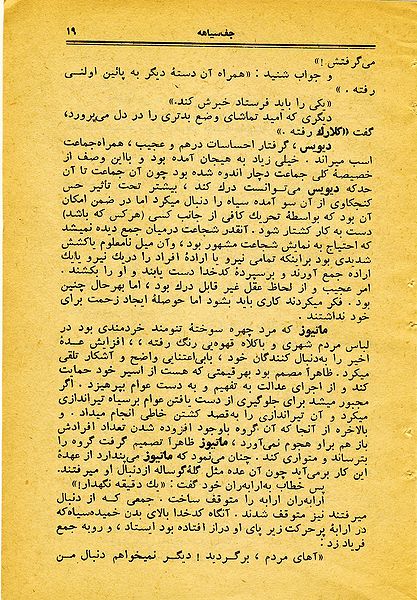 جف‌سیاهه
۱۹
می‌گرفتش!»
و جواب شنید : «همراه آن دستهٔ دیگر به پائین اولنی
رفته . »
«یکی را باید فرستاد خبرش کند.»
دیگری که امید تماشای وضع بدتری را در دل می‌پرورد،
گفت «کلارك رفته .»
دبویس ، گرفتار احساسات درهم و عجیب ، همراه‌جماعت
اسب میراند . خیلی زیاد به هیجان آمده بود و بااین وصف از
خصیصهٔ کلی جماعت دچار اندوه شده بود چون آن جماعت تا آن
حدکه دبویس می‌توانست درك کند ، بیشتر تحت تاثیر حس
کنجکاوی از آن سو آمده سیاه را دنبال میکرد اما در ضمن امکان
آن بود که بواسطهٔ تحریك کافی از جانب کسی (هرکس که باشد)
دست به کار کشتار شود . آنقدر شجاعت درمیان جمع دیده نمیشد
که احتیاج به نمایش شجاعت مشهور بود ، وآن میل نامعلوم یاکشش
شدیدی بود براینکه تمامی نیرو یا ارادهٔ افراد را دریك نیرو یایك
اراده جمع آورند و برسپردهٔ کدخدا دست یابند و او را بکشند .
امر عجیب و از لحاظ عقل غیر قابل درك بود ، اما بهرحال چنین
بود . فکر میکردند کاری باید بشود اما حوصلهٔ ایجاد زحمت برای
خود نداشتند .
ماتیوز که مرد چهره سوختهٔ تنومند خردمندی بود در
لباس مردم شهری و باکلاه قهوه‌یی رنگ رفته ، ، افزایش عدهٔ
اخیر را به‌دنبال کنندگان خود ، بابی‌اعتنایی واضح و آشکار تلقی
میکرد . ظاهراً مصمم بود بهرقیمتی که هست از اسیر خود حمایت
کند و از اجرای عدالت به تفهیم و به دست عوام بپرهیزد . اگر
مجبور میشد برای جلوگیری از دست یافتن عوام برسیاه تیراندازی
میکرد و آن تیراندازی را به‌قصد کشتن خاطی انجام میداد . و
بالاخره از آنجا که آن گروه باوجود افزوده شدن تعداد افرادش
باز هم براو هجوم نمی‌آورد ، ماتیوز ظاهرا تصمیم گرفت گروه را
بترساند و متواری کند . چنان می‌نمود که ماتیوز می‌پندارد از عهدهٔ
این کار برمی‌آید چون آن عده مثل گلهٔ گوساله ازدنبال او میرفتند.
پس خطاب به‌ارابه‌ران خود گفت : «یك دقیقه نگهدار!»
ارابه‌ران ارابه را متوقف ساخت . جمعی که از دنبال
میرفتند نیز متوقف شدند . آنگاه کدخدا بالای بدن خمیده‌سیاه‌که
در ارابهٔ پرحرکت زیر پای او دراز افتاده بود ایستاد ، و روبه جمع
فریاد زد :
«آهای مردم ، برگردید ! دیگر نمیخواهم دنبال من